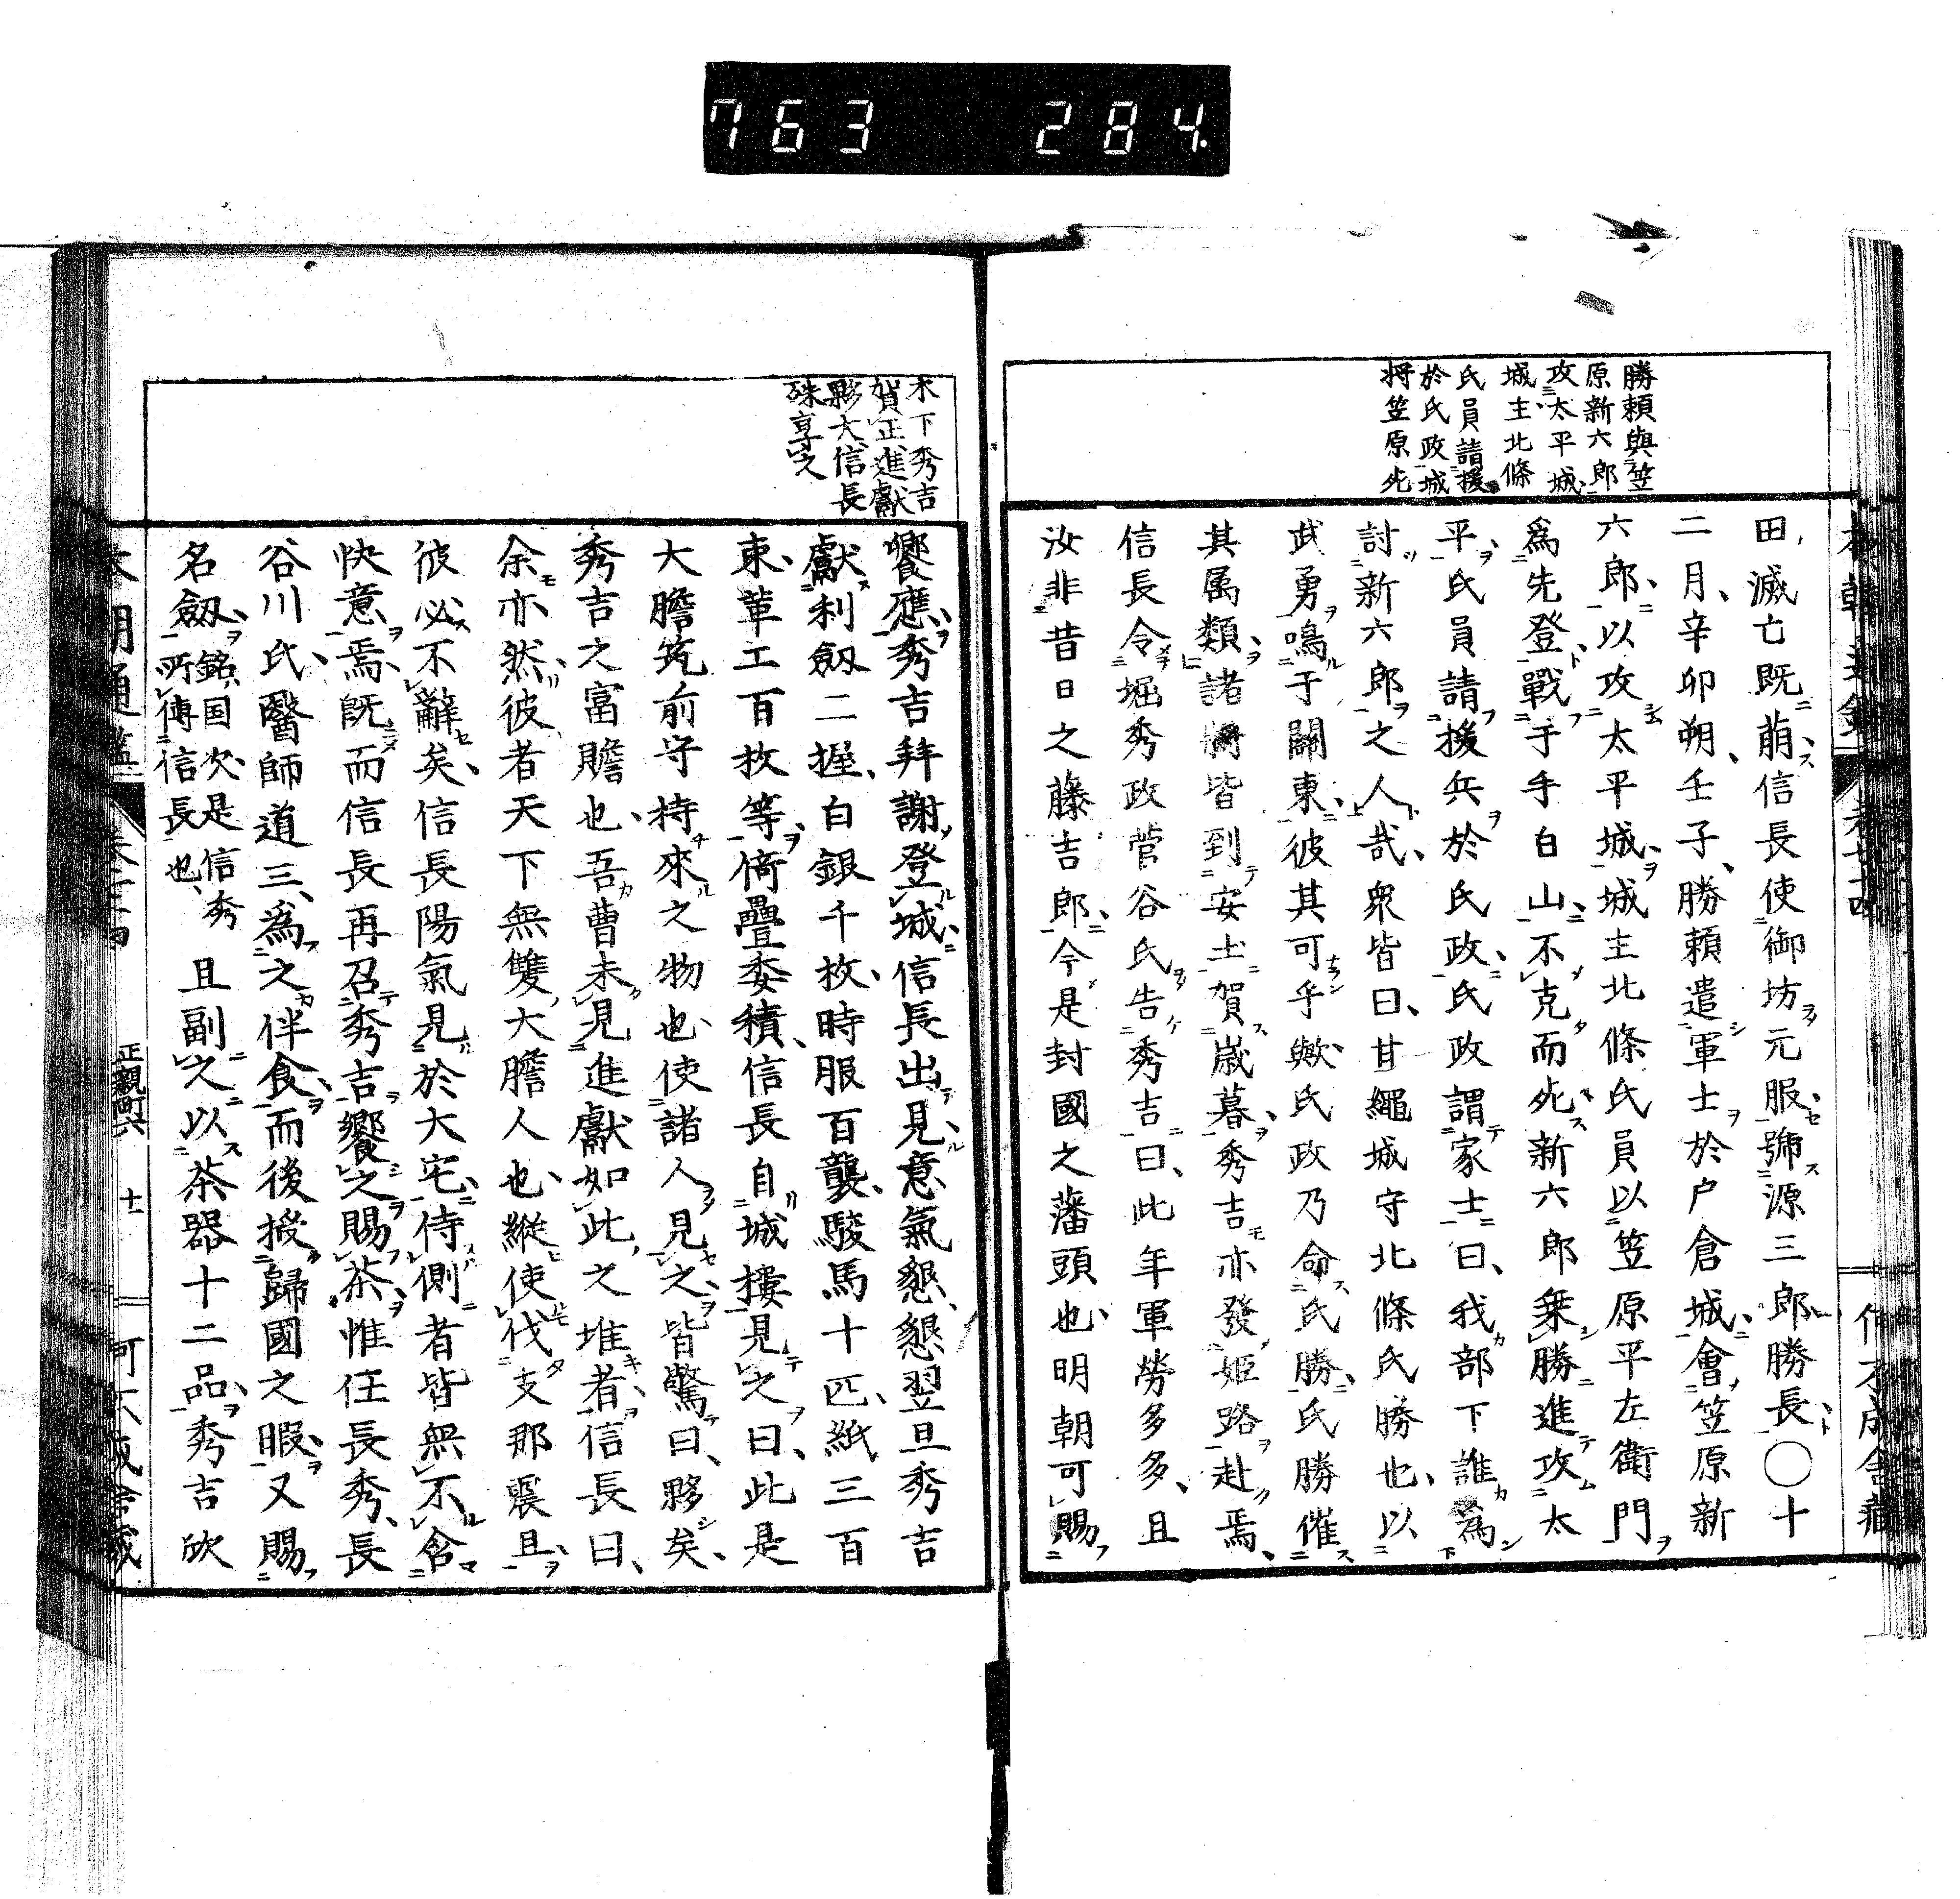 763 284
勝頼與笠
原新六郎
攻太平城
城主北條
氏員請援
於氏政城
將笠原死
田滅亡既萠信長使御坊元服號源三郎勝長○十
二月辛卯朔壬子勝頼遣軍士於户倉城會笠原新
六郎以攻太平城城主北條氏員以笠原平左衛門
爲先登戰于手白山不克而死新六郎乗勝進攻太
平氏員請援兵於氏政氏政謂家士曰我部下誰爲
討新六郎之人哉衆皆曰甘繩城守北條氏勝也以
武勇鳴于關東彼其可乎歟氏政乃命氏勝氏勝催
其属類諸將皆到安土賀歳暮秀吉亦發姫路赴焉
信長令堀秀政菅谷氏告秀吉曰此年軍勞多多且
汝非昔日之藤吉郎今是封國之藩頭也明朝可賜
木下秀吉
賀正進獻
夥大信長
殊享之
饗應秀吉拜謝登城信長出見意氣懇懇翌旦秀吉
獻利劔二握白銀千枚時服百襲駿馬十匹紙三百
束葦工百枚等倚疊委積信長自城樓見之曰此是
大膽筑前守持來之物也使諸人見之皆驚曰夥矣
秀吉之富贍也吾曹未見進獻如此之堆者信長曰
余亦然彼者天下無雙大膽人也縱使伐支那震且
彼必不辭矣信長陽氣見於大宅侍側者皆無不含
快意焉既而信長再召秀吉饗之賜茶惟任長秀長
谷川氏醫師道三爲之伴食而後授歸國之暇又賜
名劔銘国次是信秀所傳信長也且副之以茶器十二品秀吉欣
正親町六 十一